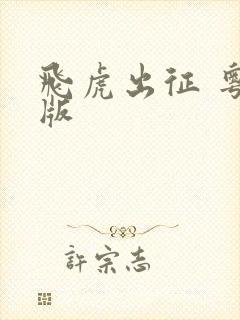 飛虎出征
版
許宗志